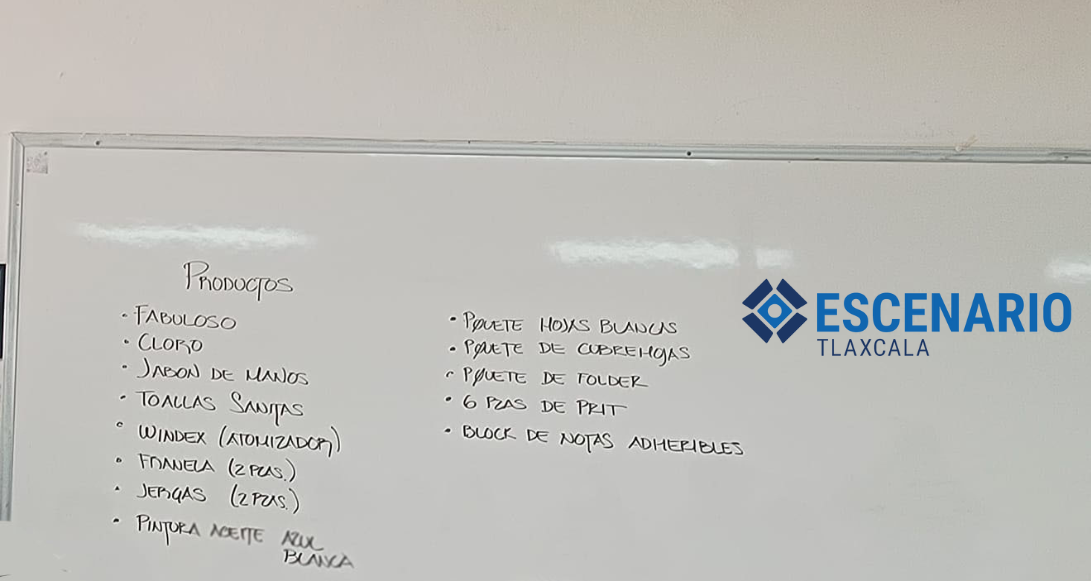 PRODUCTOS
• FABULOSO
• CLORO
• JABON DE MANOS
• TOALLAS SANITAS
• WINDEX (ATOMIZADOR)
• FRANELA (2 PZAS.)
• JERGAS (2 PZAS.)
• PINTURA ACEITE AZUL
BLANCA
• PQUETE HOJAS BLANCAS
• PQUETE DE CUBREHOJAS
• PQUETE DE FOLDER
• 6 PZAS DE PRIT
• BLOCK DE NOTAS ADHERIBLES
ESCENARIO
TLAXCALA